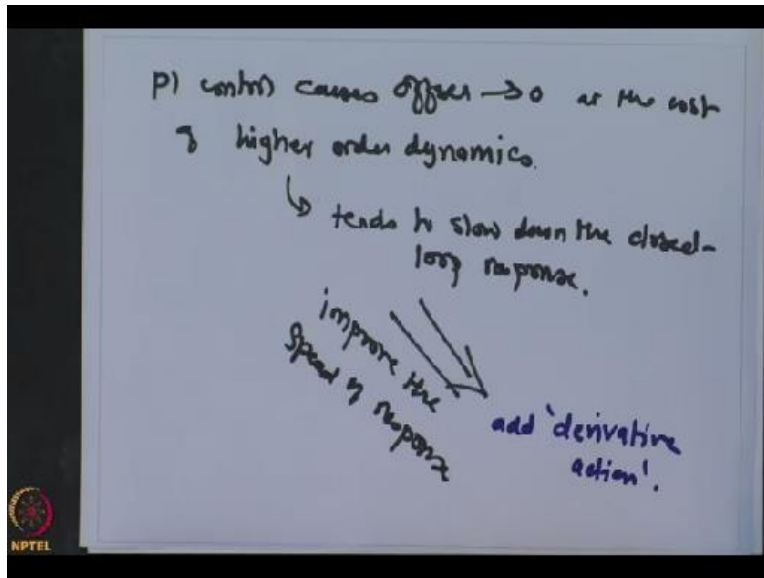 PI control causes offset → 0 at the cost
of higher order dynamics.
tends to slow down the closed-
loop response.
improve the
speed of response
add 'derivative
action'.
NPTEL